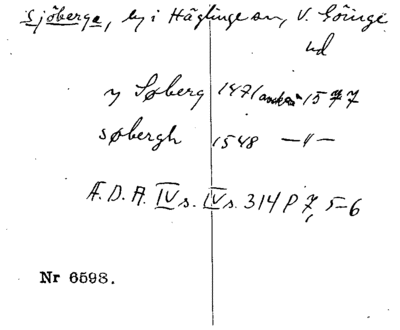 Sjöberga, by i Häglinge sn, V. Göinge
ud
y Søberg 1471 1577
søbergh 1548 —"—
Æ. D. A. IV s. IV s. 314 P 7, 5-6
Nr 6598.